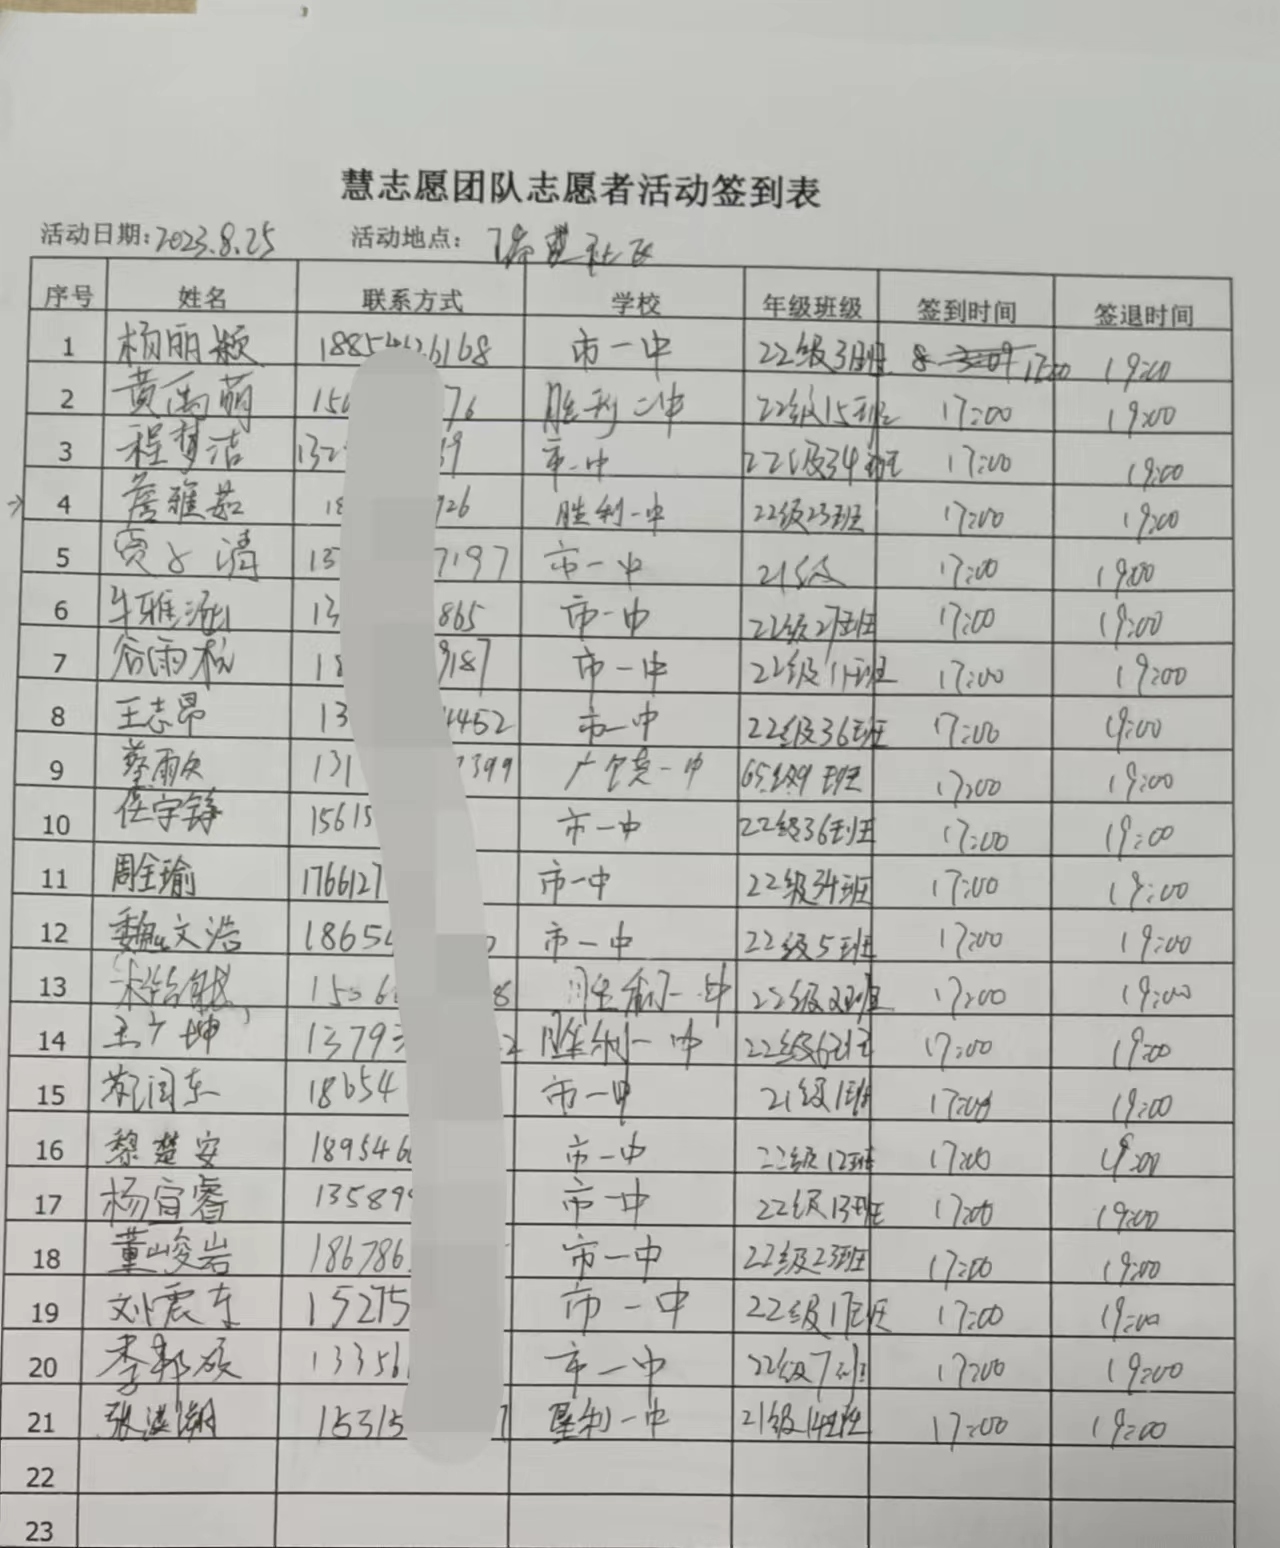 慧志愿团队志愿者活动签到表
活动日期:2023.8.25 活动地点: 社区
序号 姓名 联系方式 学校 年级班级 签到时间 签退时间
1 杨丽颖 188 6168 市一中 22级3班 17:00 19:00
2 黄禹萌 15 76 胜利二中 22级15班 17:00 19:00
3 程梦洁 132 39 市一中 22级34班 17:00 19:00
4 詹雅茹 18 926 胜利一中 22级23班 17:00 19:00
5 贾子清 13 7197 市一中 21级 17:00 19:00
6 牛雅涵 13 865 市一中 22级27班 17:00 19:00
7 谷雨杭 18 9187 市一中 22级11班 17:00 19:00
8 王志昂 13 4452 市一中 22级36班 17:00 19:00
9 蔡雨欠 131 1399 广饶一中 65级9班 17:00 19:00
10 任宇铮 15615 市一中 22级36班 17:00 19:00
11 周金瑜 1766127 市一中 22级34班 17:00 19:00
12 魏文浩 18654 市一中 22级5班 17:00 19:00
13 15 6 8 胜利一中 22级 班 17:00 19:00
14 王广坤 13793 2 胜利一中 22级6班 17:00 19:00
15 闫东 18654 市一中 21级1班 17:00 19:00
16 黎楚安 189546 市一中 22级12班 17:00 19:00
17 杨宜睿 13589 市一中 22级13班 17:00 19:00
18 董峻岩 186786 市一中 22级23班 17:00 19:00
19 刘震东 15275 市一中 22级17班 17:00 19:00
20 李邦硕 13356 市一中 22级7班 17:00 19:00
21 张 翔 15315 7 垦利一中 21级14班 17:00 19:00
22
23